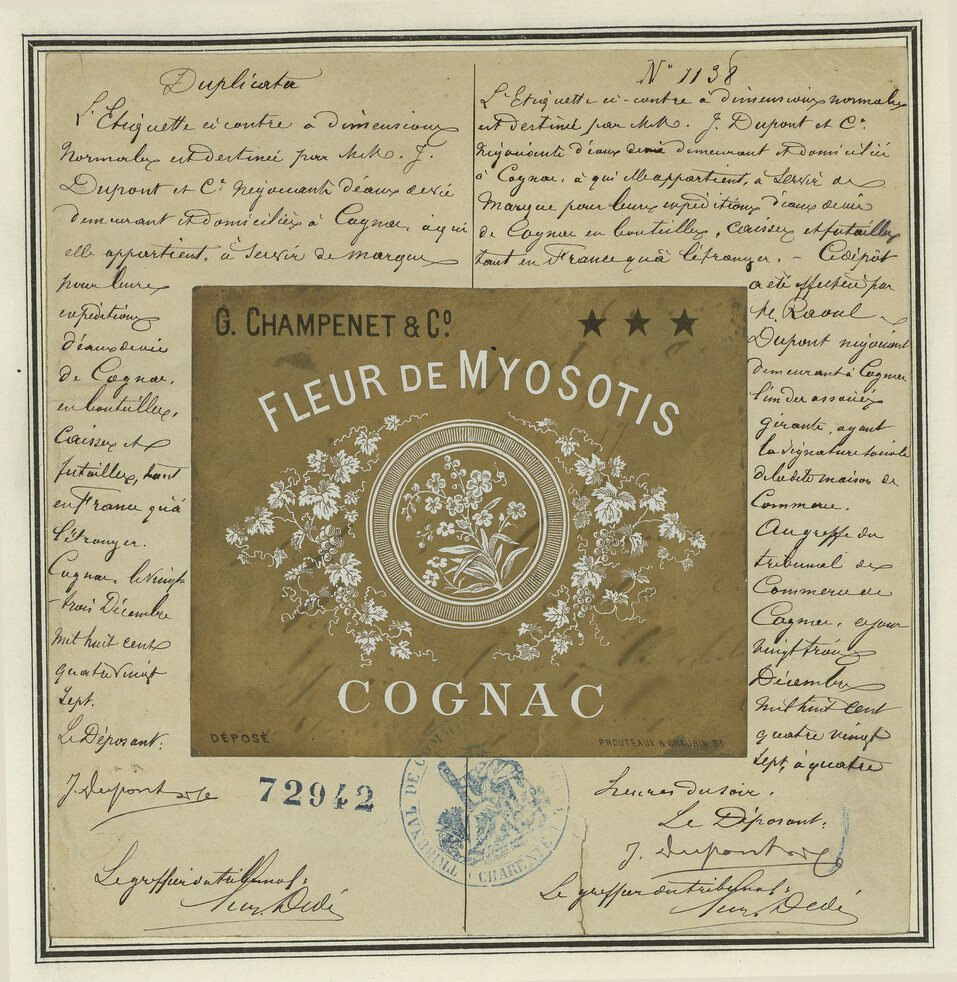 Duplicata
L'Etiquette ci contre à dimensions
normales est destinée par M.M. J.
Dupont et Cie Négociants d'eaux de vie
demeurant et domiciliés à Cognac, à qui
elle appartient, à servir de marque
pour leurs
expéditions
d'eaux de vie
de Cognac,
en bouteilles,
Caisses et
futailles, tant
en France qu'à
l'étranger.
Cognac, le vingt
-trois Décembre
mil huit cent
quatre vingt
Sept.
Le Déposant:
J. Dupont et Cie
72942
Le greffier du tribunal:
Dedé
N° 1138
L'Etiquette ci-contre à dimensions normales
est destinée par M.M. J. Dupont et Cie
Négociants d'eaux de vie demeurant et domiciliés
à Cognac, à qui elle appartient, à servir de
Marque pour leurs expéditions d'eaux de vie
de Cognac en bouteilles, caisses et futailles
tant en France qu'à l'étranger. - Ce dépôt
a été effectué par
M. Raoul
Dupont négociant
demeurant à Cognac
l'un des associés
gérants, ayant
la signature sociale
de la dite maison de
Commerce.
Au greffe du
tribunal de
Commerce de
Cognac, ce jour
vingt trois
Décembre
mil huit cent
quatre vingt
Sept, à quatre
heures du soir.
Le Déposant:
J. Dupont et Cie
Le greffier du tribunal:
Dedé
G. CHAMPENET & Cº
★ ★ ★
FLEUR DE MYOSOTIS
COGNAC
DÉPOSÉ
PROUTEAUX & CHAUBIN, Bx
TRIBUNAL DE COMMERCE
CHARENTE